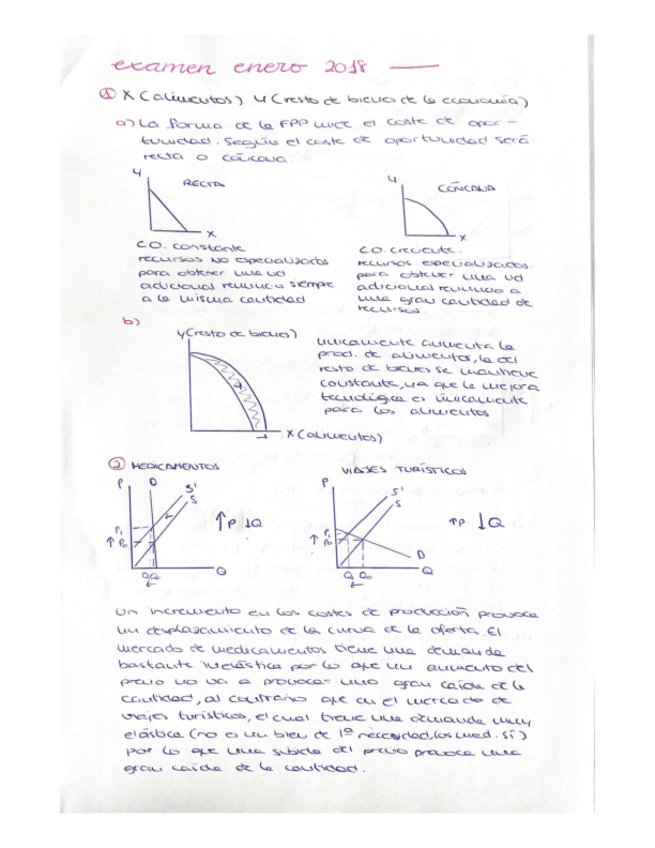 examen enero 2018 —
① X (alimentos) Y (resto de bienes de la economía)
a) La forma de la FPP mide el coste de opor-
tunidad. Según el coste de oportunidad será
recta o cóncava.
Y RECTA
X
C.O. constante
recursos NO especializados
para obtener una ud
adicional renuncio siempre
a la misma cantidad
Y CÓNCAVA
X
C.O. creciente.
recursos especializados.
para obtener una ud
adicional renuncio a
una gran cantidad de
recursos.
b)
Y (resto de bienes)
X (alimentos)
únicamente aumenta la
prod. de alimentos, la del
resto de bienes se mantiene
constante, ya que la mejora
tecnológica es únicamente
para los alimentos
② MEDICAMENTOS
P D S' S
P1
↑ P0
Q
↑P ↓Q
VIAJES TURÍSTICOS
P S' S
P1
↑ P0
D
Q1 Q0 Q
↑P ↓Q
Un incremento en los costes de producción provoca
un desplazamiento de la curva de la oferta. El
mercado de medicamentos tiene una demanda
bastante inelástica por lo que un aumento del
precio no va a provocar una gran caída de la
cantidad, al contrario que en el mercado de
viajes turísticos, el cual tiene una demanda muy
elástica (no es un bien de 1ª necesidad, los med. sí)
por lo que una subida del precio provoca una
gran caída de la cantidad.